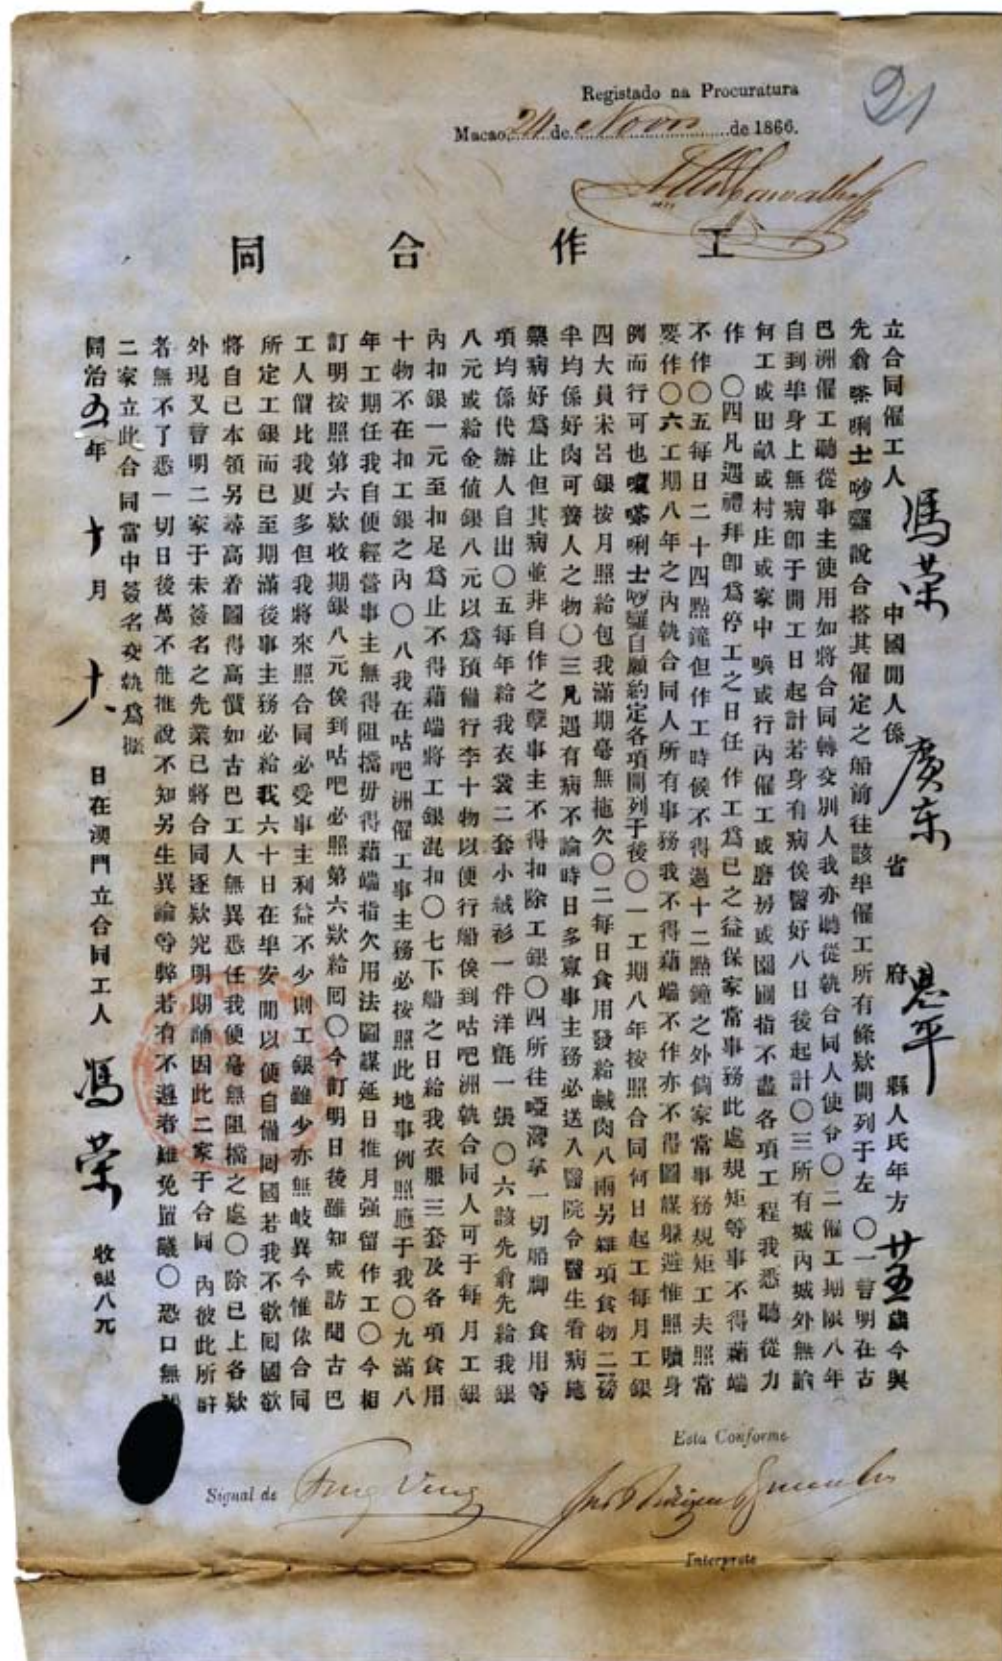 21
Registado na Procuratura
Macao, 24 de Novro de 1866.
工作合同
立合同僱工人 馮荣 中國閒人係 廣东 省 府 恩平 縣人民年方 廿五 歲今與
先翁 唦囉說合搭其僱定之船前往該埠僱工所有條欵開列于左 〇一言明在古
巴洲僱工聽從事主使用如將合同轉交別人我亦聽從執合同人使令〇二僱工期限八年
自到埠身上無病卽于開工日起計若身有病俟醫好八日後起計〇三所有城內城外無論
何工或田畝或村庄或家中喚或行內僱工或磨房或園圃指不盡各項工程我悉聽從力
作 〇四凡遇禮拜卽爲停工之日任作工爲已之益保家常事務此處規矩等事不得藉端
不作〇五每日二十四點鐘但作工時候不得過十二點鐘之外倘家常事務規矩工夫照常
要作〇六工期八年之內執合同人所有事務我不得藉端不作亦不得圖謀躱避惟照贖身
例而行可也 唦囉自願約定各項開列于後〇一工期八年按照合同何日起工每月工銀
四大員宋呂銀按月照給包我滿期毫無拖欠〇二每日食用發給鹹肉八兩另雜項食物二磅
半均係好肉可養人之物〇三凡遇有病不論時日多寡事主務必送入醫院令醫生看病施
藥病好爲止但其病並非自作之孽事主不得扣除工銀〇四所往啞灣拿一切船脚 食用等
項均係代辦人自出〇五每年給我衣裳二套小絨衫一件洋氈一張〇六該先翁先給我銀
八元或給金値銀八元以爲預備行李什物以便行船俟到咕吧洲執合同人可于每月工銀
內扣銀一元至扣足爲止不得藉端將工銀混扣〇七下船之日給我衣服三套及各項食用
什物不在扣工銀之內〇八我在咕吧洲僱工事主務必按照此地事例照應于我〇九滿八
年工期任我自便經營事主無得阻攩毋得藉端指欠用法圖謀延日推月强留作工〇今相
訂明按照第六欵收期銀八元俟到咕吧必照第六欵給囘〇今訂明日後雖知或訪聞古巴
工人價比我更多但我將來照合同必受事主利益不少則工銀雖少亦無岐異今惟依合同
所定工銀而已至期滿後事主務必給我六十日在埠安閒以便自備囘國若我不欲囘國欲
將自已本領另尋高着圖得高價如古巴工人無異悉任我便毫無阻攩之處〇除已上各欵
外現又言明二家于未簽名之先業已將合同逐欵究明期誦因此二家于合同 內彼此所許
者無不了悉一切日後萬不能推說不知另生異論等弊若有不遵者難免置議〇恐口無
二家立此合同當中簽名交執爲據
同治五年 十月 十八 日在澳門立合同工人 馮荣 收銀八元
Esta Conforme
Signal de Fung Veng
Interprete